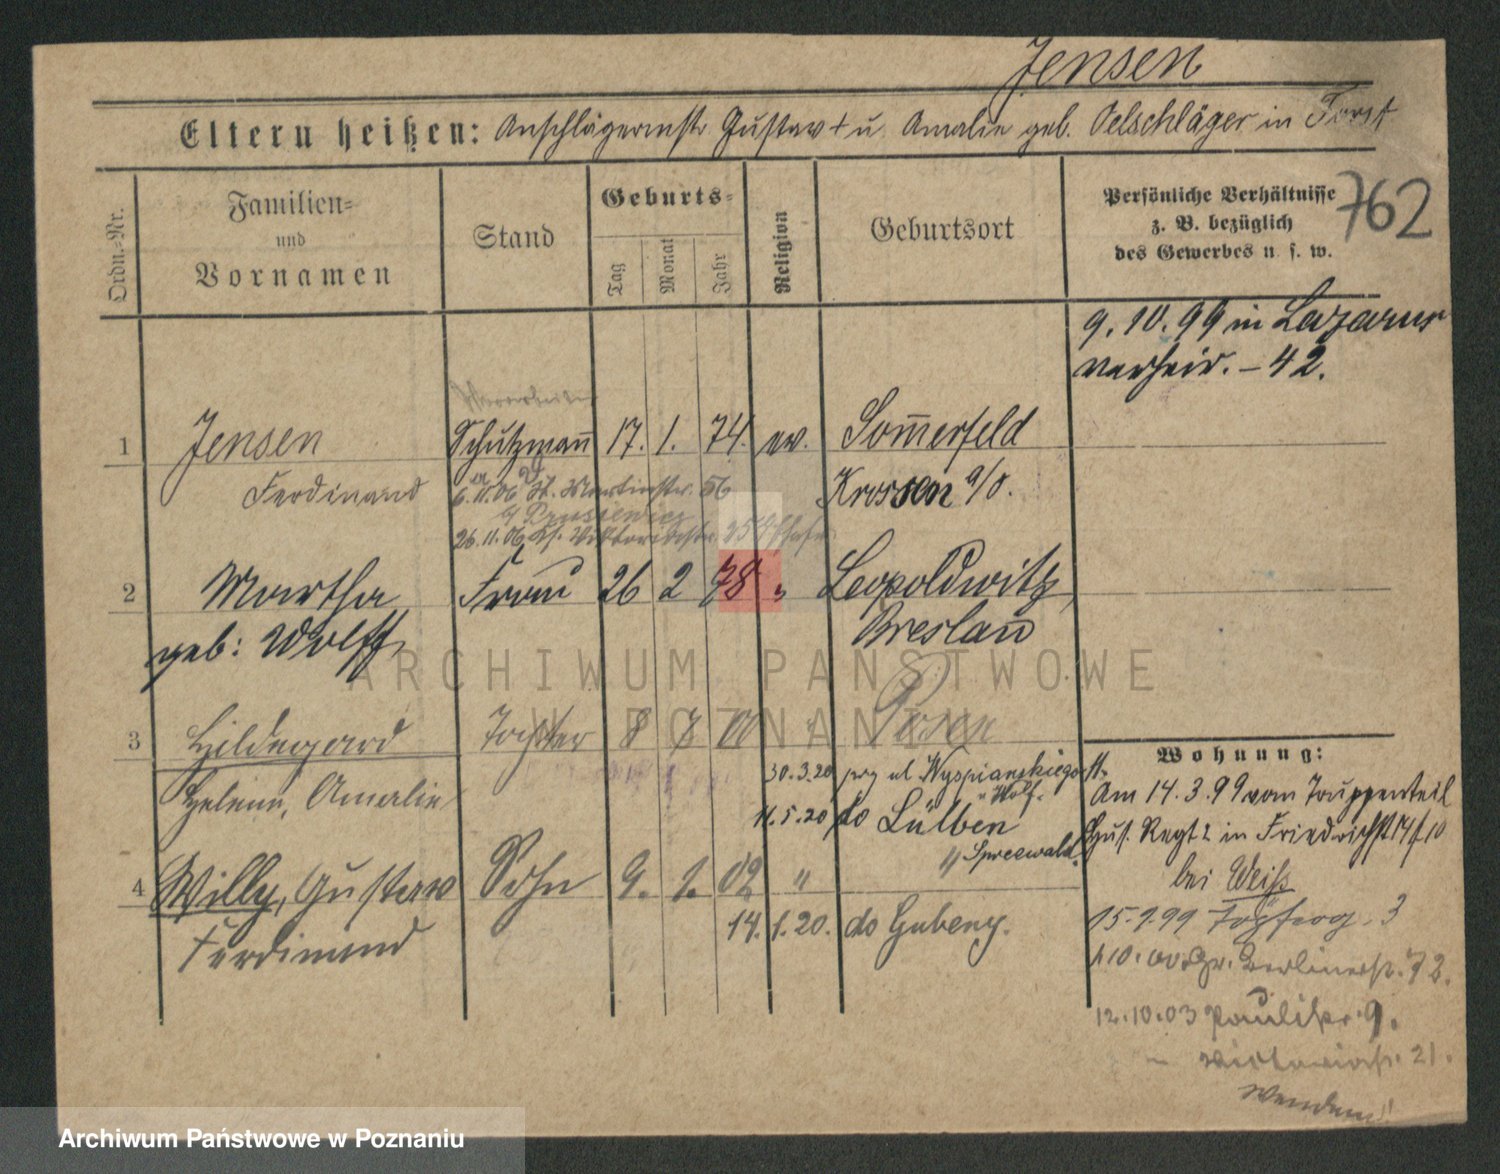 Jensen
Eltern heißen: Anschlägermstr Gustav † u. Amalie geb. Oelschläger in Forst
Ordn.-Nr.
Familien-
und
Vornamen
Stand
Geburts-
Tag
Monat
Jahr
Religion
Geburtsort
Persönliche Verhältnisse
z. B. bezüglich
des Gewerbes u. s. w.
762
9. 10. 99 in Lazarus
verheir. – 42.
1 Jensen Schutzmañ 17. 1. 74. ev. Som̄erfeld
Ferdinand
Krossen a/O.
6. 11. 06 St. Martinstr. 56
26. 11. 06 Viktoriastr.
2 Martha Frau 26 2 78 " Leopoldwitz,
geb: Wolff
Breslau
ARCHIWUM PAŃSTWOWE
W POZNANIU
3 Hildegard Tochter 8 7 00 " Posen
Helene, Amalie
30.3.20 prz ul Wyspianskiego 11.
" Wolf.
11.5.20 do Lülben
Spreewald.
4 Willy, Gustav Sohn 9. 1. 02 " "
Ferdinand
14. 1. 20. do Gubeny.
Wohnung:
Am 14. 3. 99 vom Truppenteil
Hus. Regt 2 in Friedrichst 14/10
bei Weiß
15.9.99 Töpferg. 3
1.10.00. Gr. Berlinerst. 72.
12.10.03 Paulistr. 9.
– Viktoriast. 21.
Wenden!
Archiwum Państwowe w Poznaniu